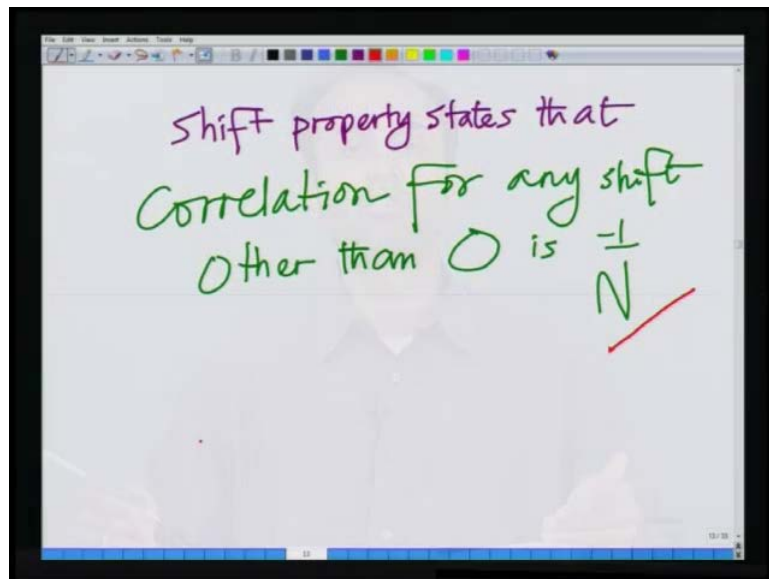 File Edit View Insert Actions Tools Help
shift property states that
Correlation for any shift
Other than 0 is -1
N
13
13/13